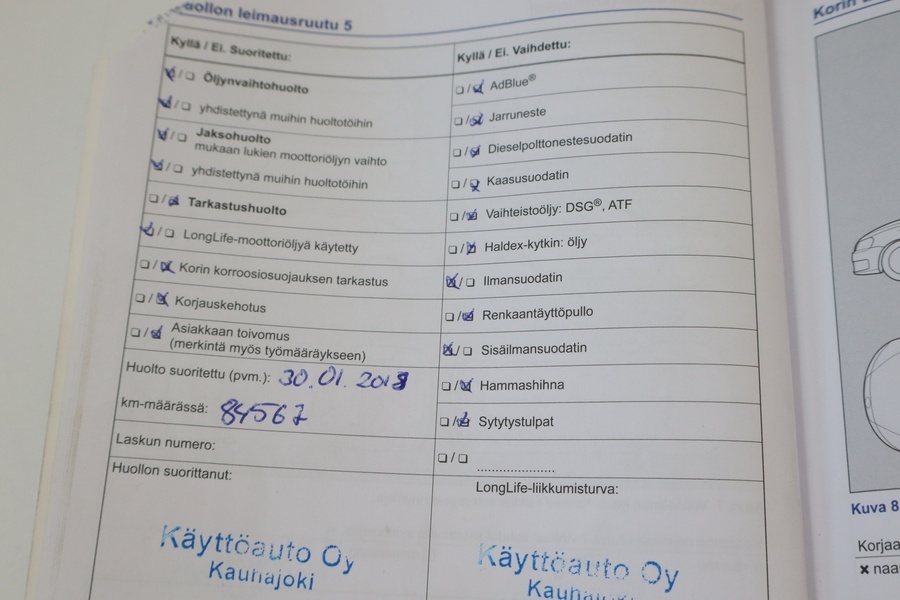 ollon leimausruutu 5
Kyllä / Ei. Suoritettu:
Öljynvaihtohuolto
yhdistettynä muihin huoltotöihin
Jaksohuolto
mukaan lukien moottoriöljyn vaihto
yhdistettynä muihin huoltotöihin
Tarkastushuolto
LongLife-moottoriöljyä käytetty
Korin korroosiosuojauksen tarkastus
Korjauskehotus
Asiakkaan toivomus
(merkintä myös työmääräykseen)
Huolto suoritettu (pvm.): 30.01.2018
km-määrässä: 84567
Laskun numero:
Huollon suorittanut:
Käyttöauto Oy
Kauhajoki
Kyllä / Ei. Vaihdettu:
AdBlue®
Jarruneste
Dieselpolttonestesuodatin
Kaasusuodatin
Vaihteistoöljy: DSG®, ATF
Haldex-kytkin: öljy
Ilmansuodatin
Renkaantäyttöpullo
Sisäilmansuodatin
Hammashihna
Sytytystulpat
......................
LongLife-liikkumisturva:
Käyttöauto Oy
Kauhajoki
Korin
Kuva 8
Korjaa
✖ naa